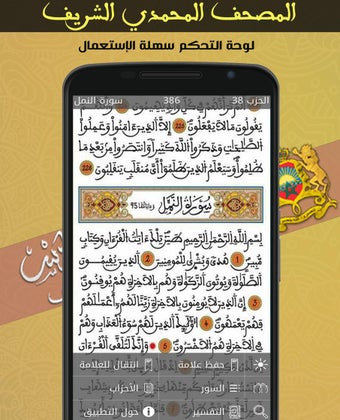 المصحف المحمدي الشريف
لوحة التحكم سهلة الإستعمال
الحزب 38 386 سورة النمل
يقولون ما لا يفعلون 225 إلا الذين ءامنوا وعملوا
الصلحت وذكروا الله كثيرا وانتصروا من بعد ما
ظلموا وسيعلم الذين ظلموا أي منقلب ينقلبون 226
سورة النمل وءاياتها 95
بسم الله الرحمن الرحيم طس تلك ءايت القرءان وكتاب
مبين 1 هدى وبشرى للمومنين 2 الذين يقيمون
الصلوة ويوتون الزكوة وهم بالاخرة هم يوقنون
3 إن الذين لا يومنون بالاخرة زينا لهم أعملهم
فهم يعمهون 4 أولئك الذين لهم سوء العذاب وهم
في الاخرة هم الاخسرون 5 وإنك لتلقى القرءان
حفظ علامة انتقال للعلامة
السور الأحزاب
التفسير حول التطبيق